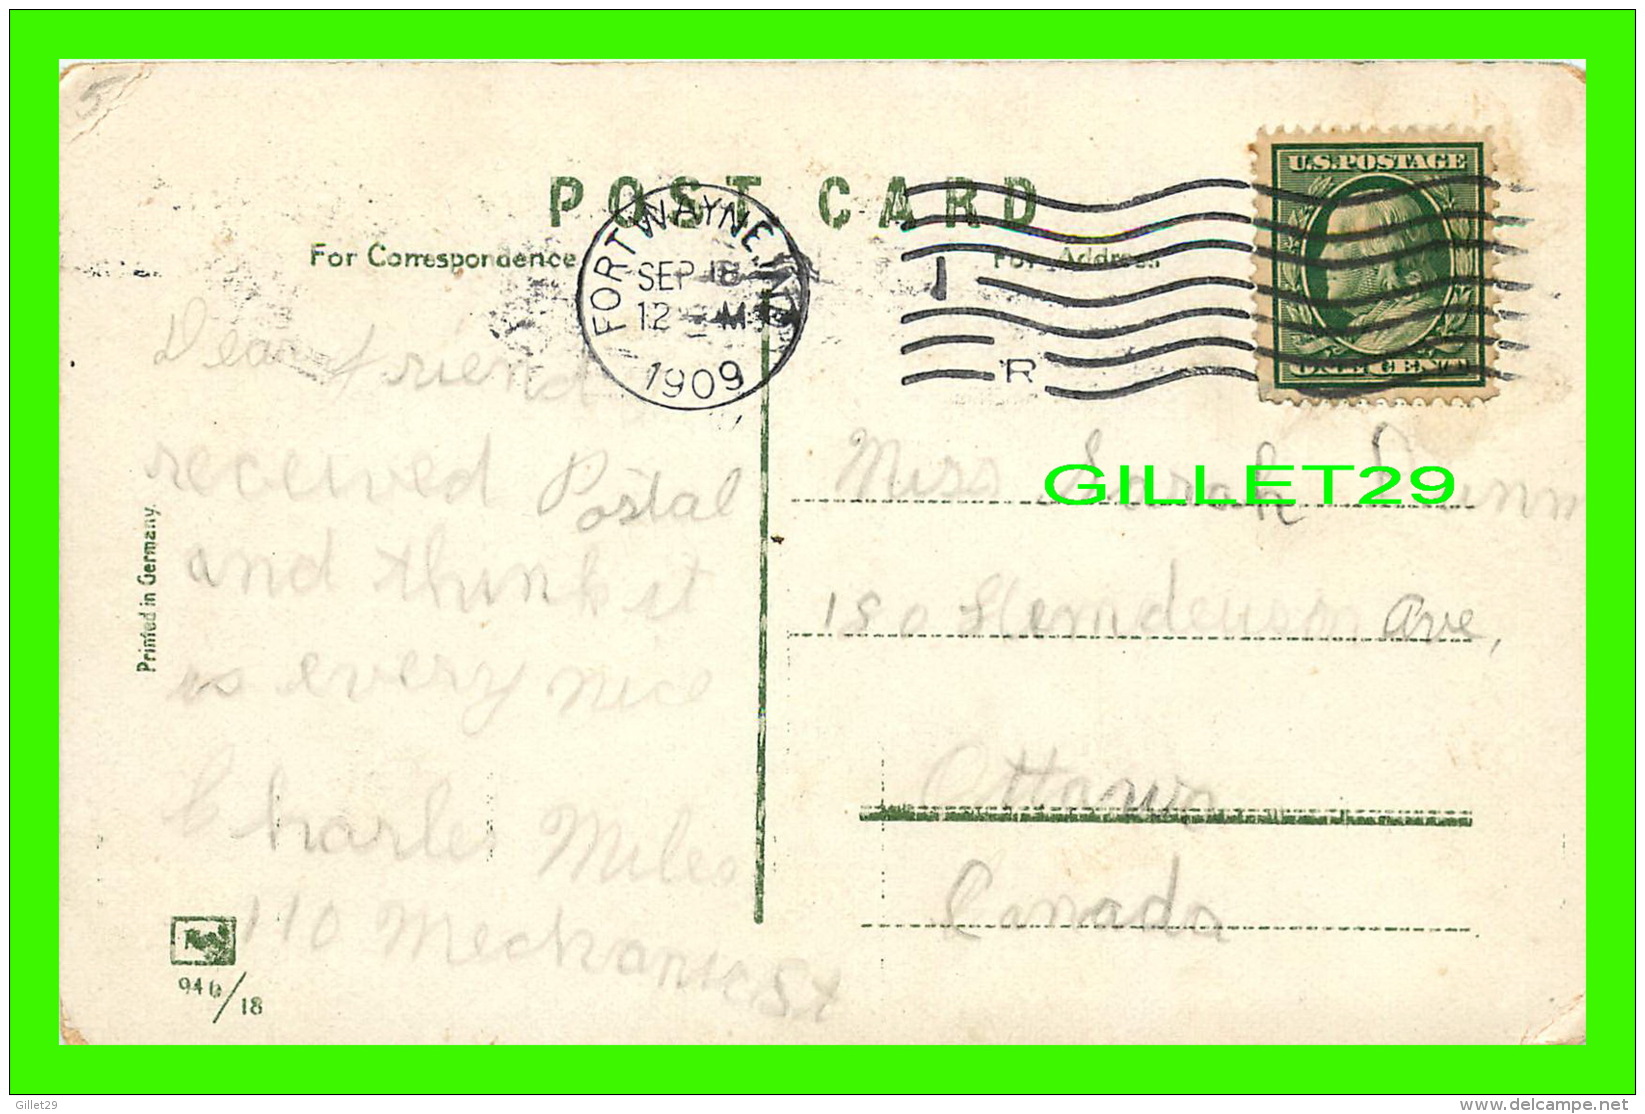 U.S. POSTAGE
POST CARD
FORT WAYNE, IND.
SEP 18
12 M
1909
For Correspondence
For Address
R
Dear friend
received Postal
and think it
is every nice
Charles Miles
110 Mechanic St
Miss Sarah
180 Henderson Ave,
Ottawa
Canada
GILLET29
Printed in Germany.
18
Gillet29
delcampe.net